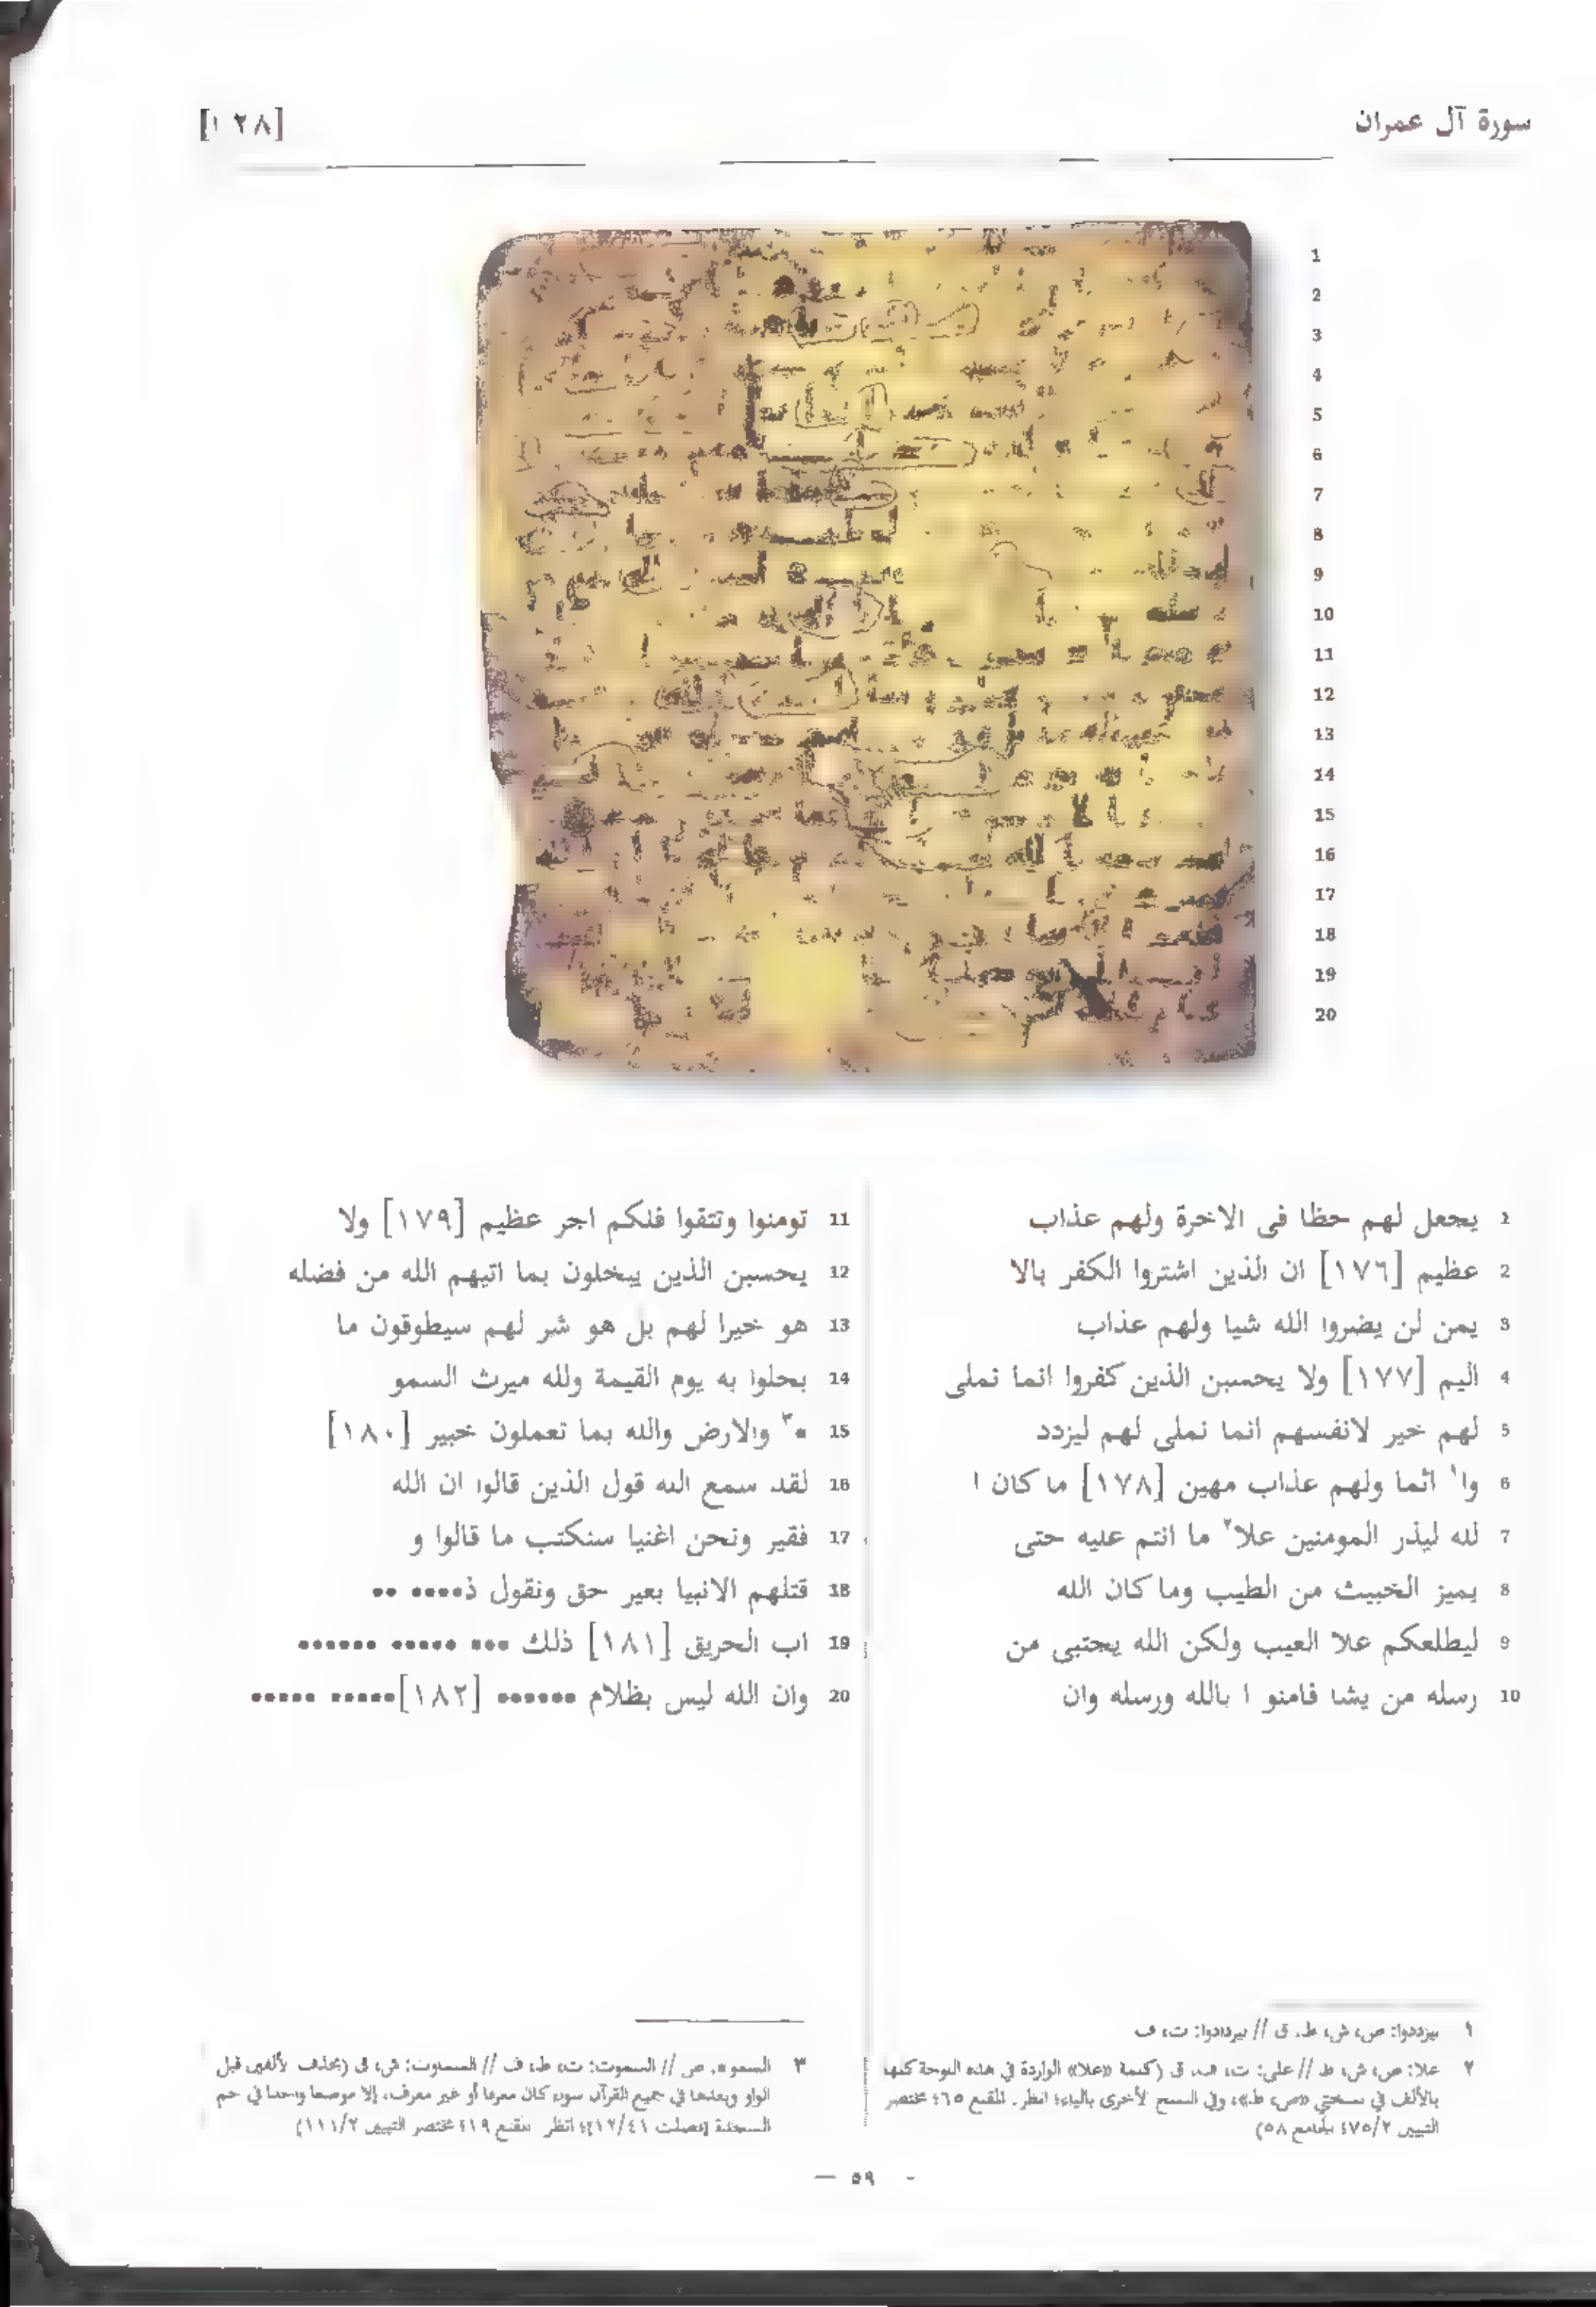 سورة آل عمران
[١٢٨]
1
2
3
4
5
6
7
8
9
10
11
12
13
14
15
16
17
18
19
20
1 يجعل لهم حظا فى الاخرة ولهم عذاب
2 عظيم [١٧٦] ان الذين اشتروا الكفر بالا
3 يمن لن يضروا الله شيا ولهم عذاب
4 اليم [١٧٧] ولا يحسبن الذين كفروا انما نملى
5 لهم خير لانفسهم انما نملى لهم ليزدد
6 وا١ اثما ولهم عذاب مهين [١٧٨] ما كان ا
7 لله ليذر المومنين علا٢ ما انتم عليه حتى
8 يميز الخبيث من الطيب وما كان الله
9 ليطلعكم علا الغيب ولكن الله يجتبى من
10 رسله من يشا فامنو ا بالله ورسله وان
11 تومنوا وتتقوا فلكم اجر عظيم [١٧٩] ولا
12 يحسبن الذين يبخلون بما اتيهم الله من فضله
13 هو خيرا لهم بل هو شر لهم سيطوقون ما
14 بخلوا به يوم القيمة ولله ميرث السمو
15 ه٣ والارض والله بما تعملون خبير [١٨٠]
16 لقد سمع الله قول الذين قالوا ان الله
17 فقير ونحن اغنيا سنكتب ما قالوا و
18 قتلهم الانبيا بغير حق ونقول ذ•••• ••
19 اب الحريق [١٨١] ذلك ••• ••••• ••••••
20 وان الله ليس بظلام •••••• [١٨٢]••••• •••••
١ ليزددوا: ص، ش، ط، ق // ليزدادوا: ت، ف
٢ علا: ص، ش، ط // على: ت، ف، ق (كلمة «علا» الواردة في هذه اللوحة كلها
بالألف في نسختي «ص، ط»، وفي النسخ الأخرى بالياء؛ انظر: المقنع ٦٥؛ مختصر
التبيين ٧٥/٢؛ الجامع ٥٨)
٣ السموه: ص // السموت: ت، ط، ف // السماوت: ش، ق (بحذف الألفين قبل
الواو وبعدها في جميع القرآن سواء كان معرفا أو غير معرف، إلا موضعا واحدا في حم
السجدة [فصلت ١٢/٤١]؛ انظر: المقنع ١٩؛ مختصر التبيين ١١١/٢)
— ٥٩ -